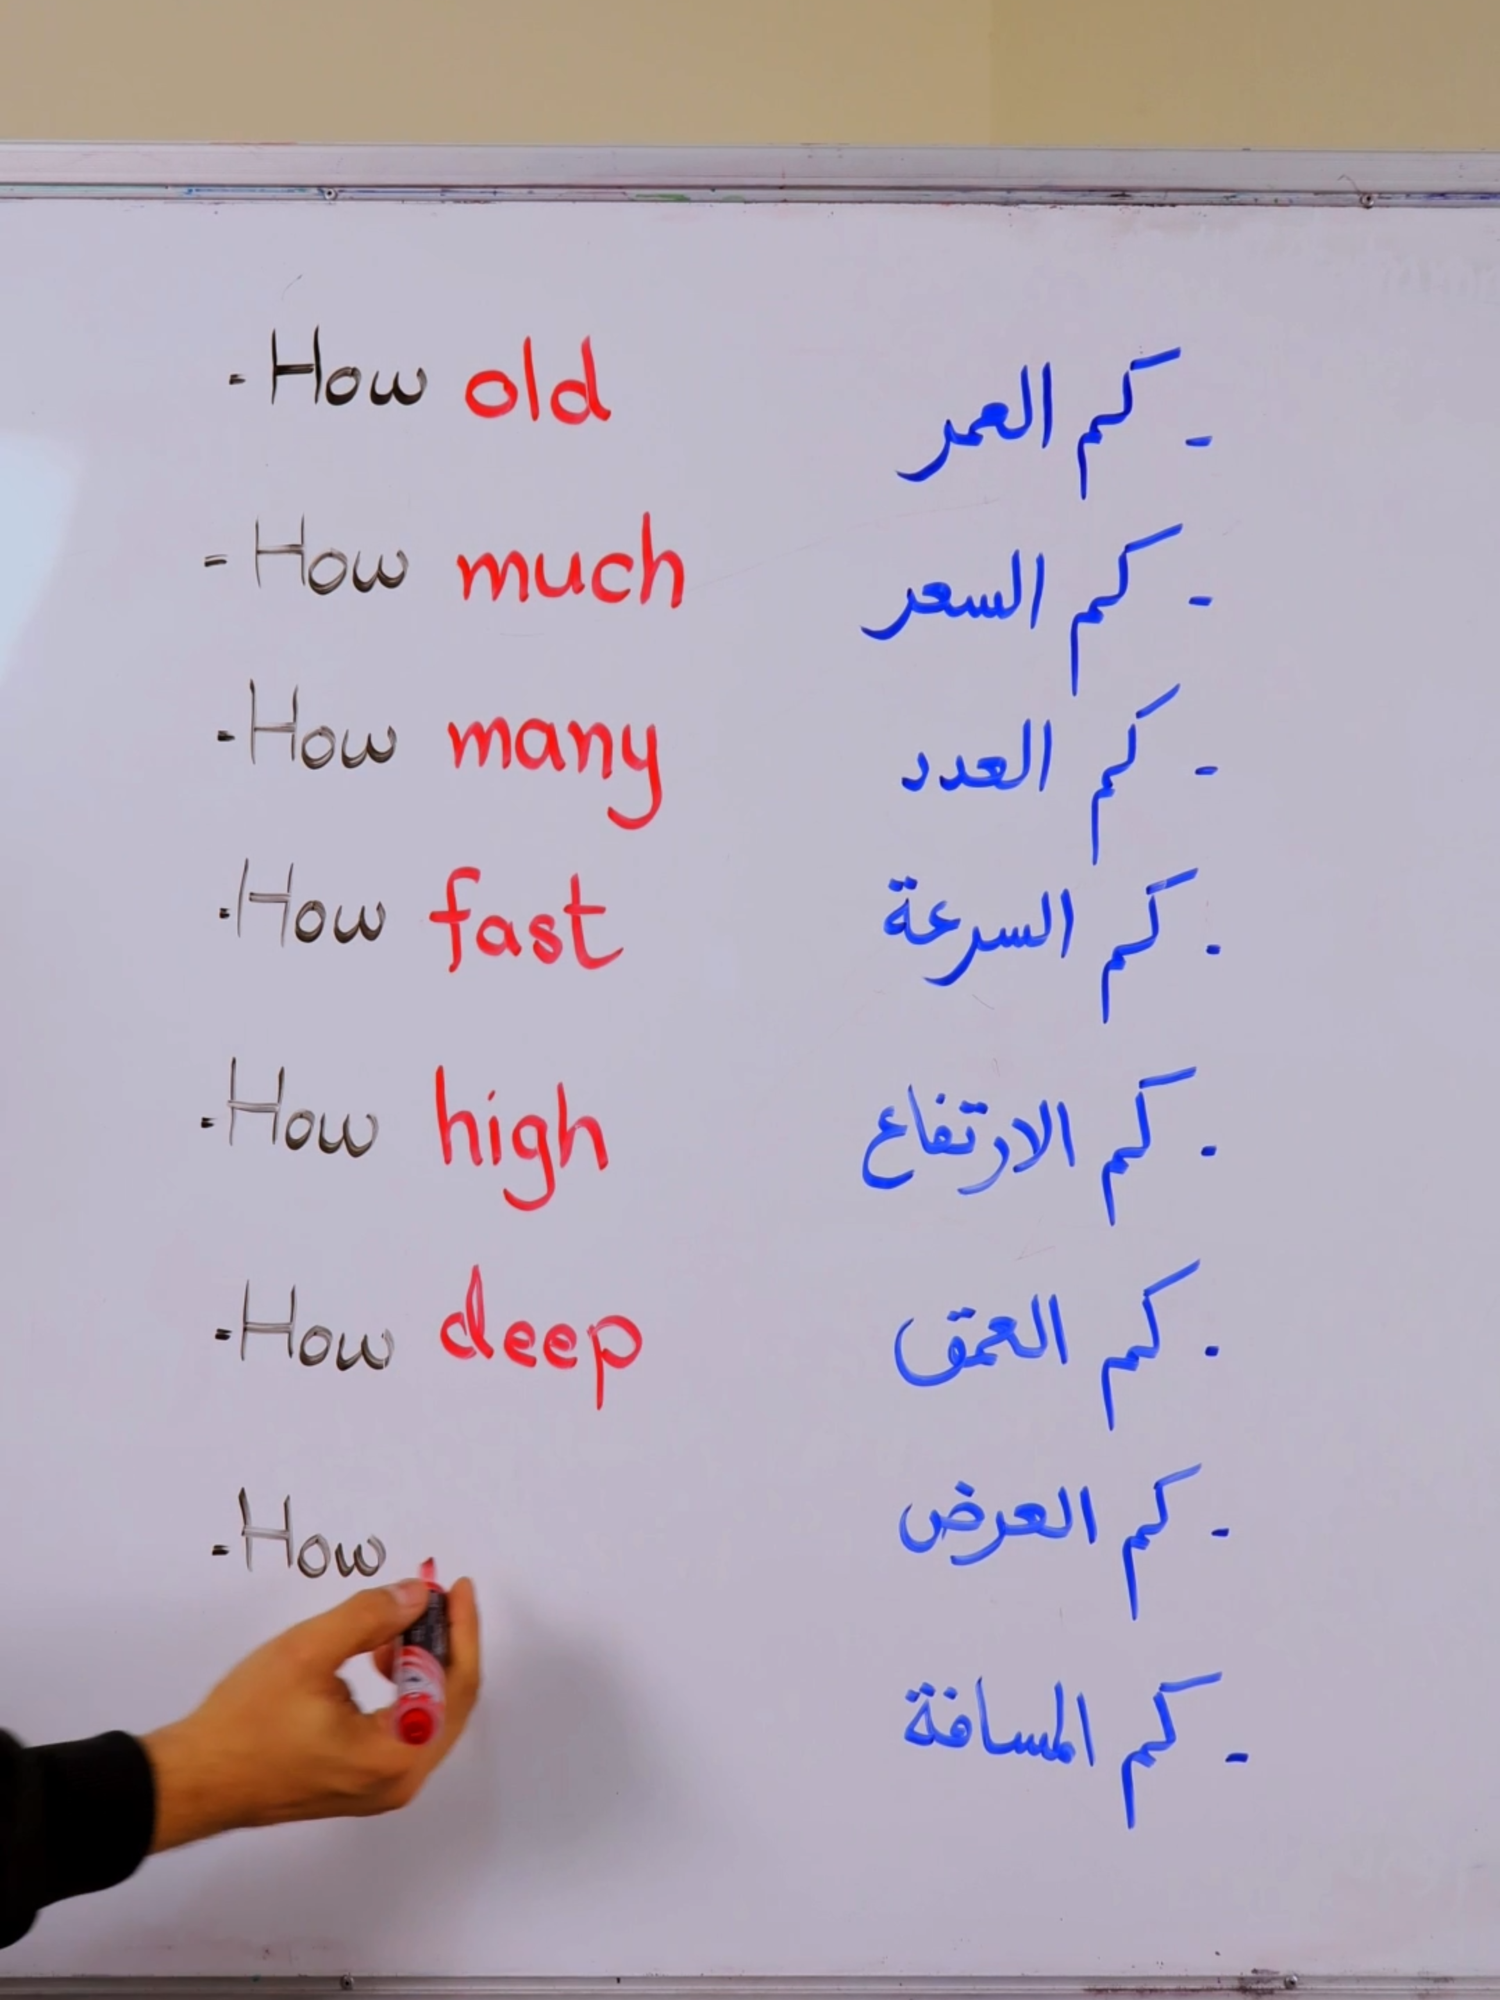 - How old
- كم العمر
- How much
- كم السعر
- How many
- كم العدد
- How fast
- كم السرعة
- How high
- كم الارتفاع
- How deep
- كم العمق
- How
- كم العرض
- كم المسافة